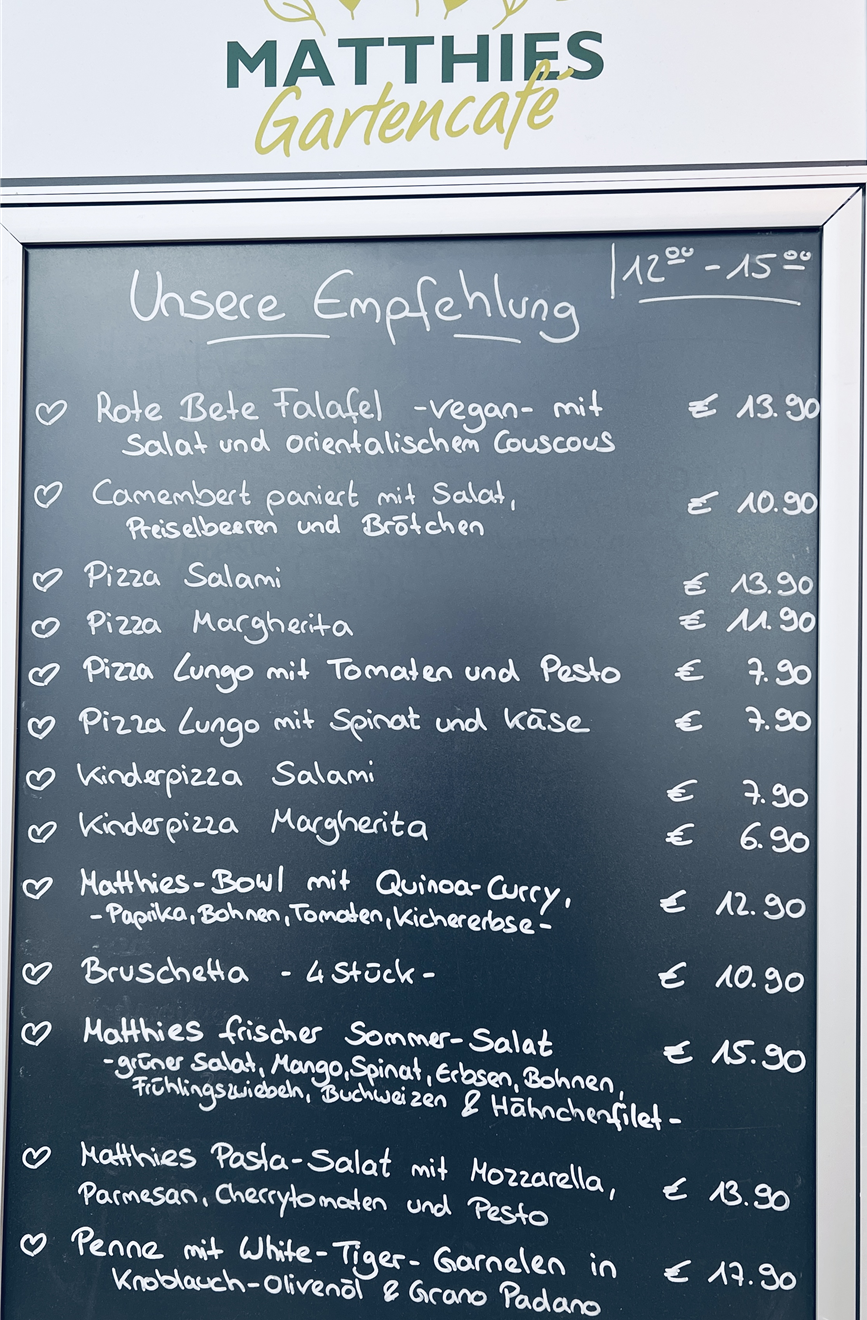 MATTHIES
Gartencafé
Unsere Empfehlung | 12⁰⁰ - 15⁰⁰
♡ Rote Bete Falafel -vegan- mit € 13.90
Salat und orientalischem Couscous
♡ Camembert paniert mit Salat, € 10.90
Preiselbeeren und Brötchen
♡ Pizza Salami € 13.90
♡ Pizza Margherita € 11.90
♡ Pizza Lungo mit Tomaten und Pesto € 7.90
♡ Pizza Lungo mit Spinat und Käse € 7.90
♡ Kinderpizza Salami € 7.90
♡ Kinderpizza Margherita € 6.90
♡ Matthies-Bowl mit Quinoa-Curry, € 12.90
-Paprika, Bohnen, Tomaten, Kichererbse-
♡ Bruschetta - 4 Stück - € 10.90
♡ Matthies frischer Sommer-Salat € 15.90
-grüner Salat, Mango, Spinat, Erbsen, Bohnen,
Frühlingszwiebeln, Buchweizen & Hähnchenfilet-
♡ Matthies Pasta-Salat mit Mozzarella, € 13.90
Parmesan, Cherrytomaten und Pesto
♡ Penne mit White-Tiger-Garnelen in € 17.90
Knoblauch-Olivenöl & Grano Padano